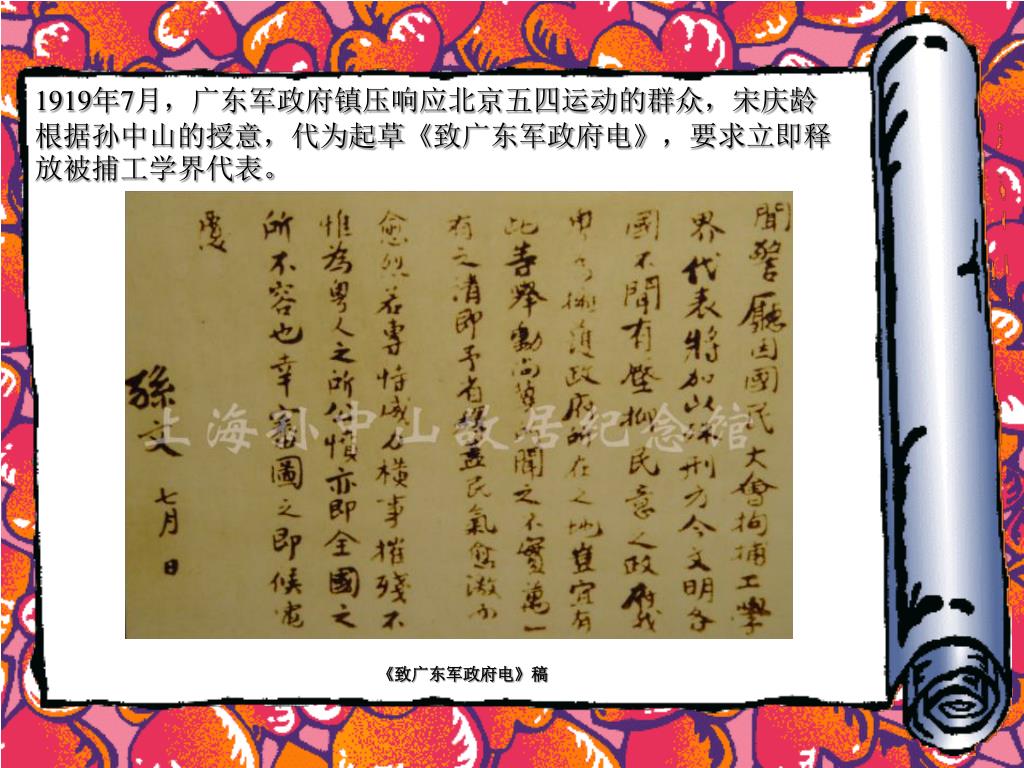 1919年7月，广东军政府镇压响应北京五四运动的群众，宋庆龄
根据孙中山的授意，代为起草《致广东军政府电》，要求立即释
放被捕工学界代表。
聞警廳因國民大會拘捕工學
界代表將加以刑方今文明各
國不聞有壓抑民意之政府我
擁護政府所在之地豈宜有
此等舉動尚望聞之不實萬一
有之請即予省釋蓋民氣愈激而
愈烈若專恃威力橫事摧殘不
惟為粵人之所公憤亦即全國之
所不容也幸審圖之即候電
覆
孫文
七月 日
上海孙中山故居纪念馆
《致广东军政府电》稿